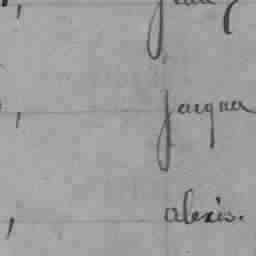 ,
, Jacques
, alexis.